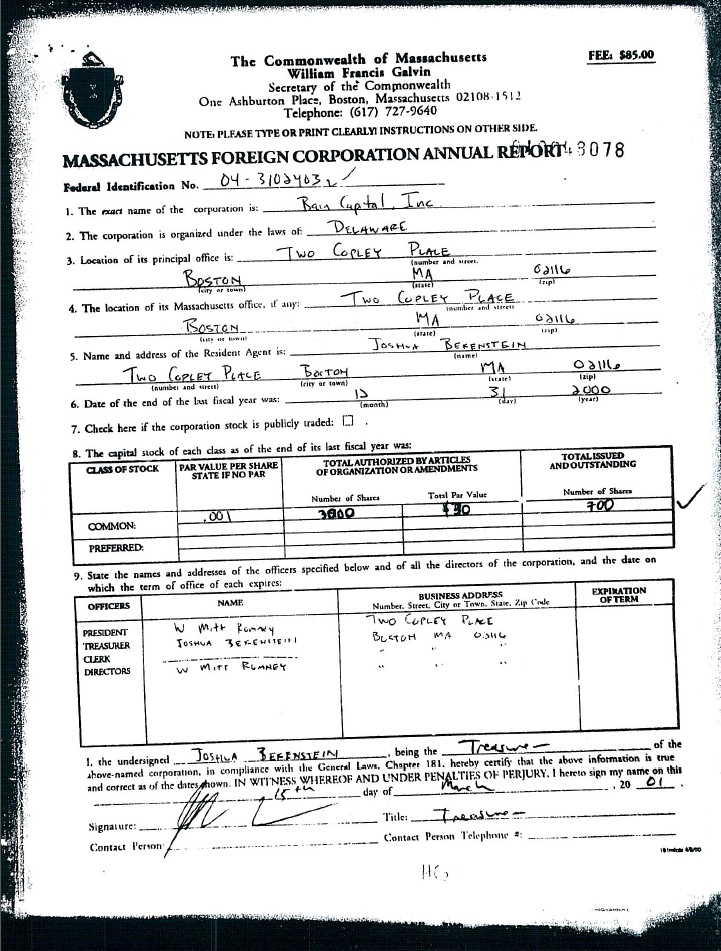 The Commonwealth of Massachusetts
FEE: $85.00
William Francis Galvin
Secretary of the Commonwealth
One Ashburton Place, Boston, Massachusetts 02108-1512
Telephone: (617) 727-9640
NOTE: PLEASE TYPE OR PRINT CLEARLY! INSTRUCTIONS ON OTHER SIDE.
MASSACHUSETTS FOREIGN CORPORATION ANNUAL REPORT 3078
Federal Identification No.
1. The exact name of the corporation is: Bain Capital, Inc
2. The corporation is organized under the laws of: DELAWARE
3. Location of its principal office is: TWO COPLEY PLACE
(number and street)
BOSTON MA 02116
(city or town) (state) (zip)
4. The location of its Massachusetts office, if any: TWO COPLEY PLACE
(number and street)
BOSTON MA 02116
(city or town) (state) (zip)
5. Name and address of the Resident Agent is: JOSHUA BEKENSTEIN
(name)
TWO COPLEY PLACE BOSTON MA 02116
(number and street) (city or town) (state) (zip)
6. Date of the end of the last fiscal year was: 12 31 2000
(month) (day) (year)
7. Check here if the corporation stock is publicly traded: .
8. The capital stock of each class as of the end of its last fiscal year was:
CLASS OF STOCK PAR VALUE PER SHARE STATE IF NO PAR TOTAL AUTHORIZED BY ARTICLES OF ORGANIZATION OR AMENDMENTS TOTAL ISSUED AND OUTSTANDING
Number of Shares Total Par Value Number of Shares
.001 700
COMMON:
PREFERRED:
9. State the names and addresses of the officers specified below and of all the directors of the corporation, and the date on
which the term of office of each expires:
OFFICERS NAME BUSINESS ADDRESS EXPIRATION OF TERM
Number, Street, City or Town, State, Zip Code
PRESIDENT W Mitt Romney TWO COPLEY PLACE
TREASURER JOSHUA BEKENSTEIN BOSTON MA 02116
CLERK " " "
DIRECTORS W MITT ROMNEY " " "
I, the undersigned JOSHUA BEKENSTEIN, being the Treasurer of the
above-named corporation, in compliance with the General Laws, Chapter 181, hereby certify that the above information is true
and correct as of the dates shown. IN WITNESS WHEREOF AND UNDER PENALTIES OF PERJURY, I hereto sign my name on this
15th day of March, 20 01.
Signature: Title: Treasurer
Contact Person: Contact Person Telephone #: